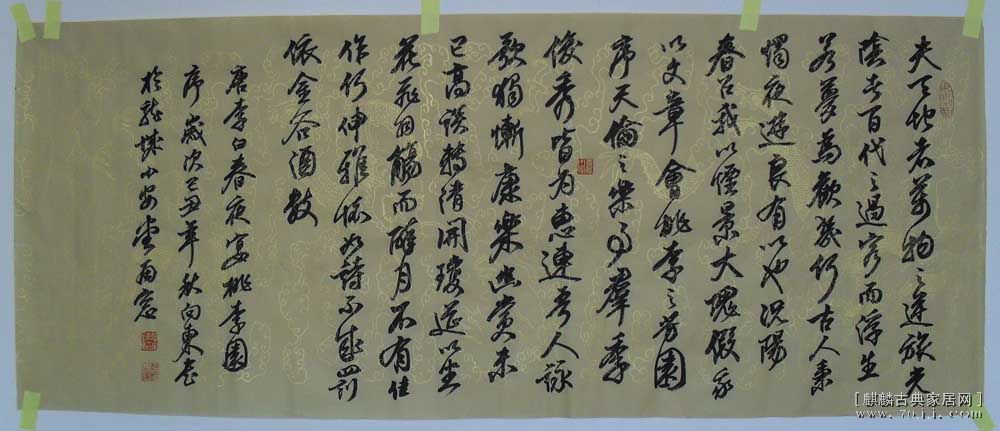 夫天地者萬物之逆旅光
陰者百代之過客而浮生
若夢為歡幾何古人秉
燭夜遊良有以也況陽
春召我以煙景大塊假我
以文章會桃李之芳園
序天倫之樂事群季
俊秀皆為惠連吾人詠
歌獨慚康樂幽賞未
已高談轉清開瓊筵以坐
花飛羽觴而醉月不有佳
作何伸雅懷如詩不成罰
依金谷酒數
唐李白春夜宴桃李園
序歲次己丑年秋向東書
於龍城小安堂雨窗
[麒麟古典家居网]
www.7qjj.com